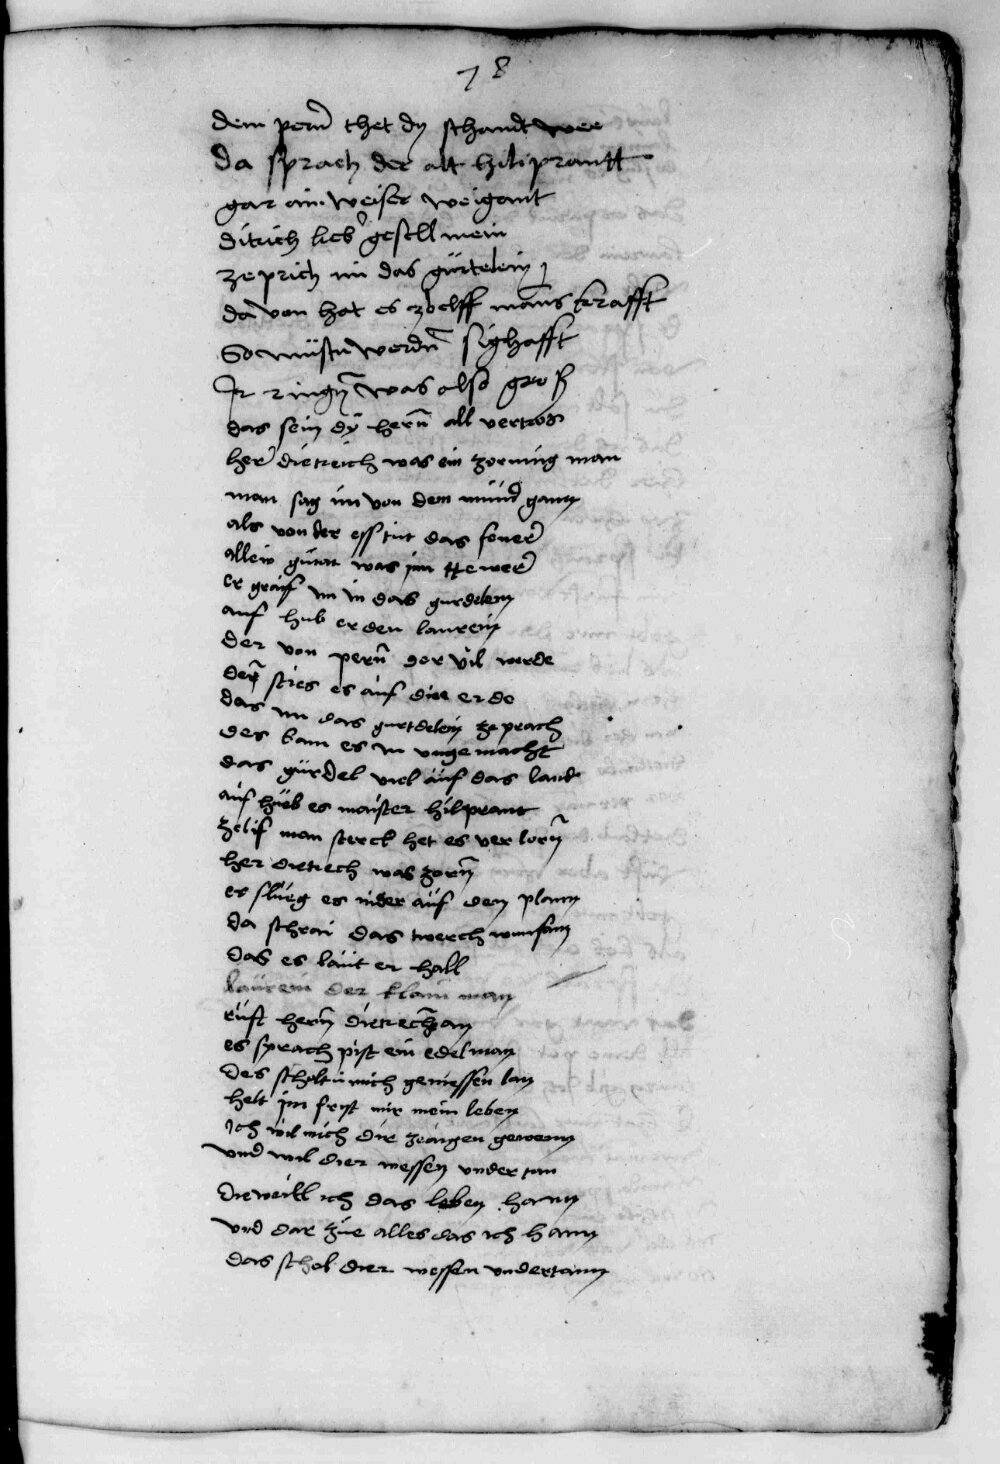 78
dem pern̄ thet dy schandt wee
da sprach der alt hiliprantt
gar ain weiser weigant
ditrich lieb gesell mein
zeprich im das gürtelein
da von hat es zbelff mans krafft
So müstu werdn̄ sighafft
Ir ringn̄ was also groß
das sein dÿ hern̄ all vertros
her dietreich was ein zorning man
man sag im von dem mund gann
als von der ess tüt das feuer
allein gütat was jm tewer
er graif im in das gurdelein
auf hub er den laurein
der von pern̄ der vil werde
den̄ sties es auf diee erde
das im das gurtdelein zeprach
des kam es in ungemacht
das gürdel viel auf das landt
auf hüeb es maister hilprant
zelif man sterck het es verlorn̄
her dietrech was zorn̄
er slüeg es nider auf den plann
da schrai das twerch wunsam
das es laüt er hall
laurein der klain man
rüft hern̄ dietrech an
es sprach pist ein edel man
des scholtu mich geniessen lan
helt jm fryst mir mein leben
Ich wil mich dir zeaigen gewenn
und wil dier wessen undertan
dieweill ich das leben hann
und dar züe alles das ich hann
das schol dier wessen undertann